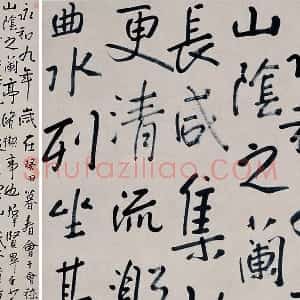 山陰之蘭
長咸集
更清流激
曲水列坐其
永和九年歲在癸丑暮春會于會稽
山陰之蘭亭脩禊事也羣賢畢至少
shufaziliao.COM